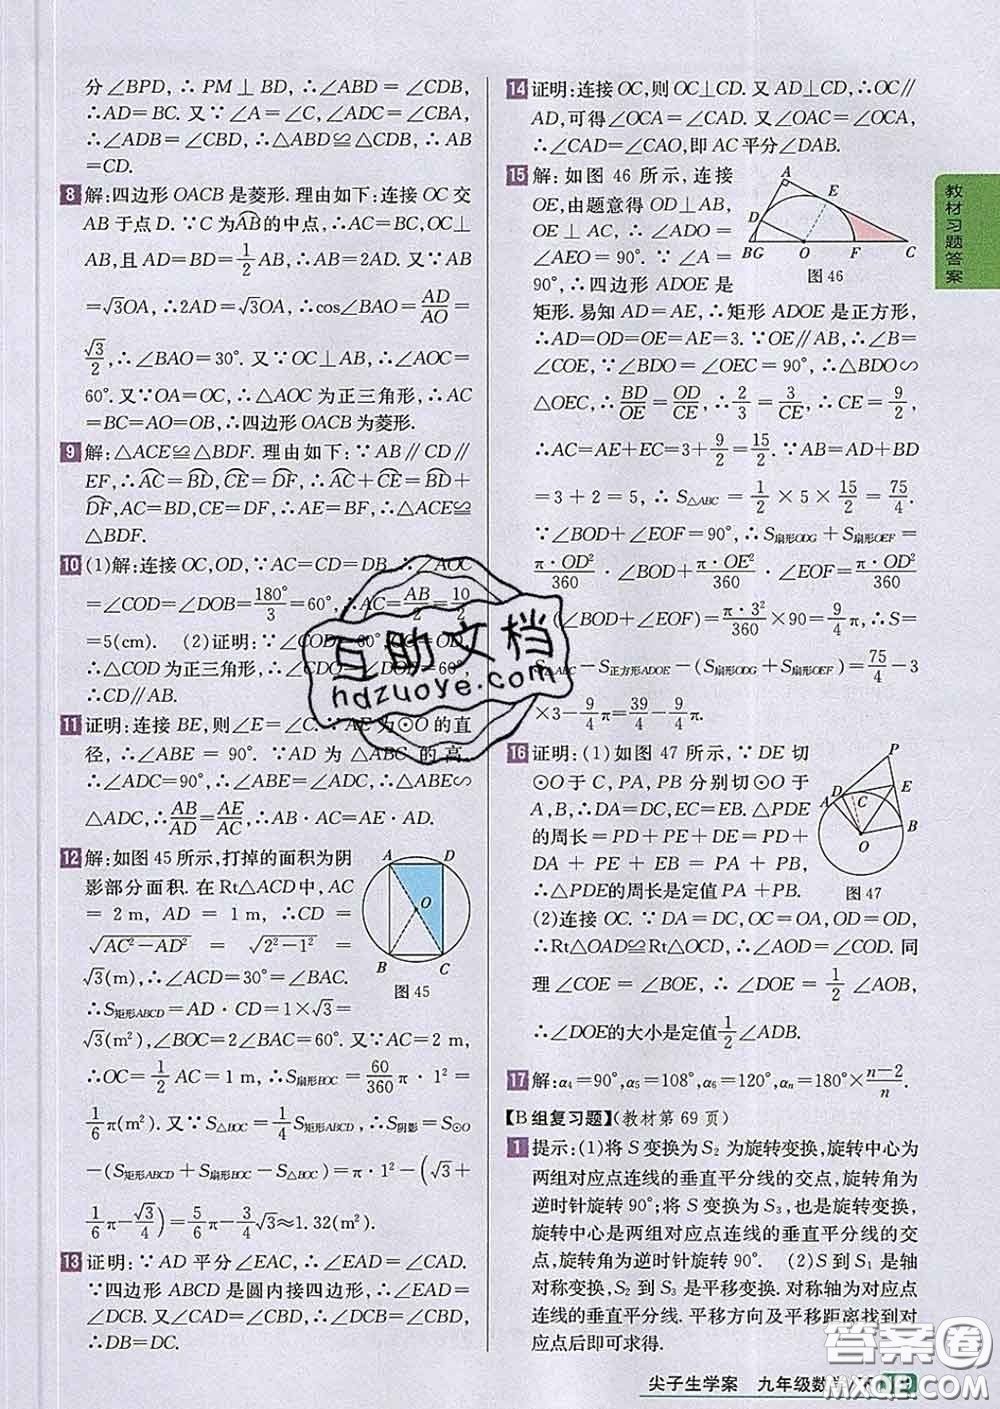 分∠BPD, ∴PM⊥BD, ∴∠ABD=∠CDB,
∴AD=BC. 又∵∠A=∠C, ∠ADC=∠CBA,
∴∠ADB=∠CBD, ∴△ABD≌△CDB, ∴AB
=CD.
8 解:四边形OACB是菱形. 理由如下:连接OC交
AB于点D. ∵C为AB的中点, ∴AC=BC, OC⊥
AB, 且AD=1/2 AB, ∴AB=2AD. 又∵AB
=√3OA, ∴2AD=√3OA, ∴cos∠BAO=AD/AO=
√3/2, ∴∠BAO=30°. 又∵OC⊥AB, ∴∠AOC=
60°. 又∵OA=OC, ∴△AOC为正三角形, ∴AC
=BC=AO=OB, ∴四边形OACB为菱形.
9 解:△ACE≌△BDF. 理由如下:∵AB∥CD∥
EF, ∴AC=BD, CE=DF, ∴AC+CE=BD+
DF, AC=BD, CE=DF, ∴AE=BF, ∴△ACE≌
△BDF.
10 (1)解:连接OC,OD, ∵AC=CD=DB, ∴∠AOC
=∠COD=∠DOB=180°/3=60°, ∴AC=AB/2=10/2
=5(cm). (2)证明:∵∠COD=60°
∴△COD为正三角形, ∴∠CDO=∠DOB=60°,
∴CD∥AB.
11 证明:连接BE,则∠E=∠C. ∵AE为⊙O的直
径, ∴∠ABE=90°. ∵AD为△ABC的高,
∴∠ADC=90°, ∴∠ABE=∠ADC, ∴△ABE∽
△ADC, ∴AB/AD=AE/AC, ∴AB·AC=AE·AD.
12 解:如图45所示,打掉的面积为阴
影部分面积. 在Rt△ACD中,AC
=2 m, AD=1 m, ∴CD=
√(AC²-AD²)=√(2²-1²)=
√3(m), ∴∠ACD=30°=∠BAC.
A D O B C
图45
∴S矩形ABCD=AD·CD=1×√3=
√3(m²), ∠BOC=2∠BAC=60°. ∵AC=2 m,
∴OC=1/2 AC=1 m, ∴S扇形BOC=60/360π·1²=
1/6π(m²). 又∵S△BOC=1/4 S矩形ABCD, ∴S阴影=S⊙O
-(S矩形ABCD+S扇形BOC-S△BOC)=π·1²-(√3+
1/6π-√3/4)=5/6π-3/4√3≈1.32(m²).
13 证明:∵AD平分∠EAC, ∴∠EAD=∠CAD.
∵四边形ABCD是圆内接四边形, ∴∠EAD=
∠DCB. 又∵∠CAD=∠CBD, ∴∠DCB=∠CBD,
∴DB=DC.
14 证明:连接OC,则OC⊥CD. 又AD⊥CD, ∴OC∥
AD, 可得∠OCA=∠CAD. 又∠OAC=∠OCA,
∴∠CAD=∠CAO, 即AC平分∠DAB.
15 解:如图46所示,连接
OE,由题意得OD⊥AB,
OE⊥AC, ∴∠ADO=
∠AEO=90°. ∵∠A=
90°, ∴四边形ADOE是
A E D BG O F C
图46
矩形. 易知AD=AE, ∴矩形ADOE是正方形,
∴AD=OD=OE=AE=3. ∵OE∥AB, ∴∠B=
∠COE, ∵∠BDO=∠OEC=90°, ∴△BDO∽
△OEC, ∴BD/OE=OD/CE, ∴2/3=3/CE, ∴CE=9/2,
∴AC=AE+EC=3+9/2=15/2. ∵AB=AD+BD
=3+2=5, ∴S△ABC=1/2×5×15/2=75/4.
∵∠BOD+∠EOF=90°, ∴S扇形ODG+S扇形OEF=
π·OD²/360·∠BOD+π·OE²/360·∠EOF=π·OD²/360
(∠BOD+∠EOF)=π·3²/360×90=9/4π, ∴S=
S△ABC-S正方形ADOE-(S扇形ODG+S扇形OEF)=75/4-3
×3-9/4π=39/4-9/4π.
16 证明:(1)如图47所示, ∵DE切
⊙O于C, PA, PB分别切⊙O于
A,B, ∴DA=DC, EC=EB. △PDE
的周长=PD+PE+DE=PD+
DA+PE+EB=PA+PB,
∴△PDE的周长是定值PA+PB.
P D C E A B O
图47
(2)连接OC. ∵DA=DC, OA=OC, OD=OD,
∴Rt△OAD≌Rt△OCD, ∴∠AOD=∠COD. 同
理∠COE=∠BOE, ∴∠DOE=1/2∠AOB,
∴∠DOE的大小是定值1/2∠ADB.
17 解:α₄=90°, α₅=108°, α₆=120°, αₙ=180°×(n-2)/n.
【B组复习题】(教材第69页)
1 提示:(1)将S变换为S₂为旋转变换,旋转中心为
两组对应点连线的垂直平分线的交点,旋转角为
逆时针旋转90°;将S变换为S₃,也是旋转变换,
旋转中心是两组对应点连线的垂直平分线的交
点,旋转角为逆时针旋转90°. (2)S到S₁是轴
对称变换,S₂到S₃是平移变换. 对称轴为对应点
连线的垂直平分线. 平移方向及平移距离找到对
应点后即可求得.
教材习题答案
尖子生学案 九年级数学
互助文档
hdzuoye.com
答案圈
MXQE.COM